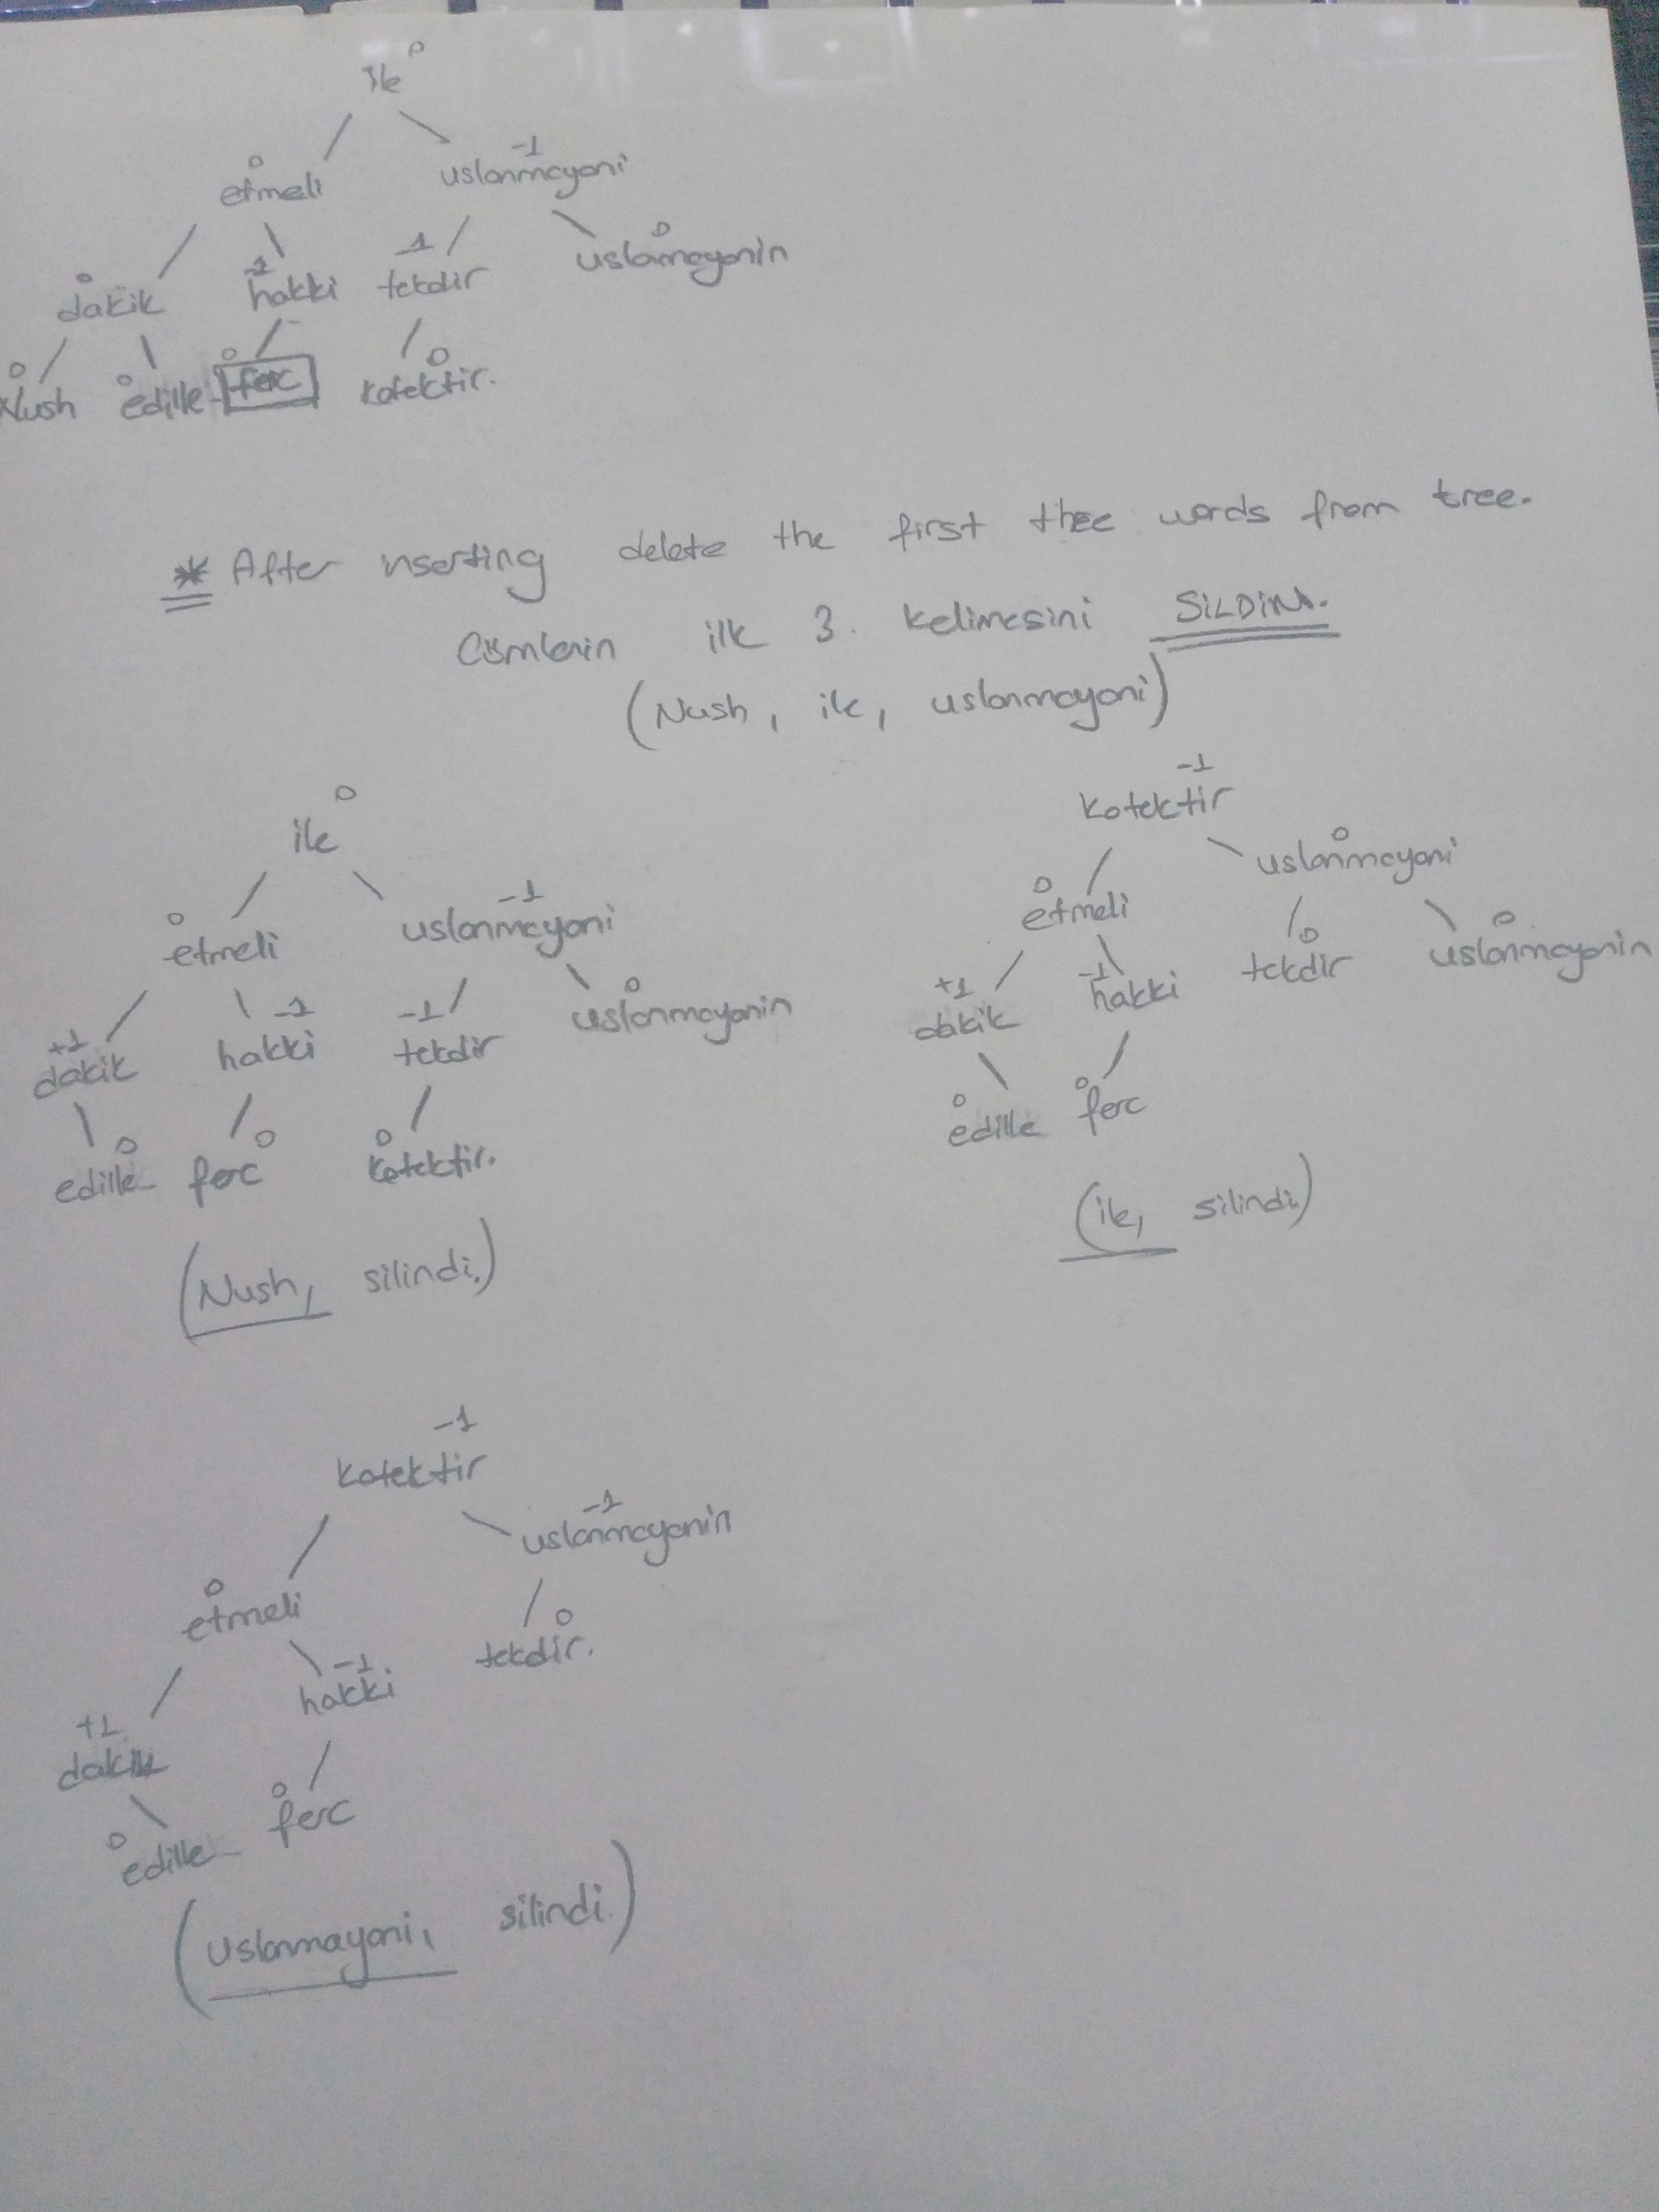 0
ile
0 -1
etmeli uslanmayani
0 -1 -1 0
dakik hakki tekdir uslanmayanin
0 0 0 0
Nush edille ferc kotektir.
* After inserting delete the first thee words from tree.
Cümlenin ilk 3. kelimesini SİLDİM.
(Nush, ile, uslanmayani)
0
ile
0 -1
etmeli uslanmayani
+1 -1 -1 0
dakik hakki tekdir uslanmayanin
0 0 0
edille ferc kotektir.
(Nush, silindi.)
-1
kotektir
0 0
etmeli uslanmayani
+1 -1 0 0
dakik hakki tekdir uslanmayanin
0 0
edille ferc
(ile, silindi.)
-1
kotektir
0 -1
etmeli uslanmayanin
+1 -1 0
dakik hakki tekdir.
0 0
edille ferc
(uslanmayani, silindi.)